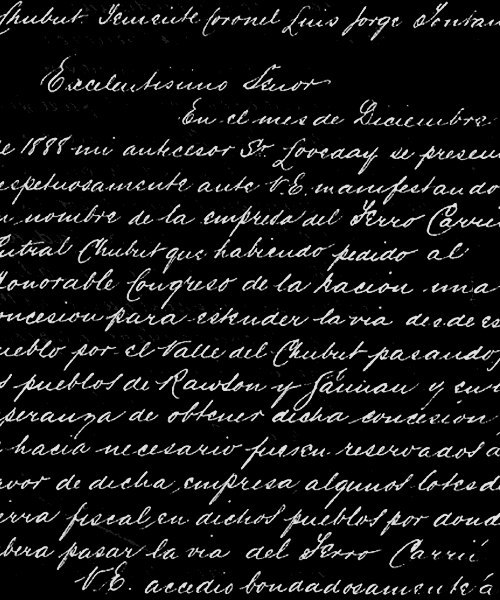 Chubut Teniente Coronel Luis Jorge Fontan
Excelentisimo Señor
En el mes de Diciembre
de 1888 mi antecesor Sr. Loveday se presen
espetuosamente ante V.E. manifestando
n nombre de la empresa del Ferro Carril
entral Chubut que habiendo pedido al
Honorable Congreso de la nacion una
oncesion para estender la via desde es
ueblo por el Valle del Chubut pasando
s pueblos de Rawson y Gaiman y en
speranza de obtener dicha concesion
hacia necesario fuesen reservados a
avor de dicha empresa algunos lotes de
ierra fiscal en dichos pueblos por dond
bera pasar la via del Ferro Carril
V.E. accedio bondadosamente á